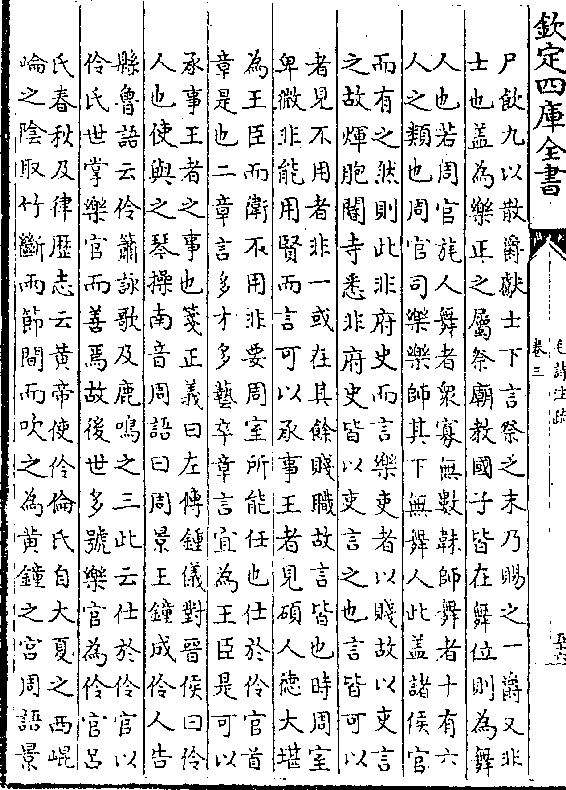 欽定四庫全書
毛詩注疏
卷三
尸飲九以散爵獻士下言祭之末乃賜之一爵又非
士也盖為樂正之屬祭廟教國子皆在舞位則為舞
人也若周官旄人舞者衆寡無數韎師舞者十有六
人之類也周官司樂樂師其下無舞人此盖諸侯官
而有之然則此非府史而言樂吏者以賤故以吏言
之故煇胞閽寺悉非府史皆以吏言之也言皆可以
者見不用者非一或在其餘賤職故言皆也時周室
卑微非能用賢而言可以承事王者見碩人德大堪
為王臣而衛不用非要周室所能任也仕於伶官首
章是也二章言多才多藝卒章言宜為王臣是可以
承事王者之事也箋正義曰左傳鍾儀對晉侯曰伶
人也使與之琴操南音周語曰周景王鐘成伶人告
縣魯語云伶簫詠歌及鹿鳴之三此云仕於伶官以
伶氏世掌樂官而善焉故後世多號樂官為伶官吕
氏春秋及律歴志云黄帝使伶倫氏自大夏之西崐
崘之隂取竹斷兩節間而吹之為黄鐘之宫周語景